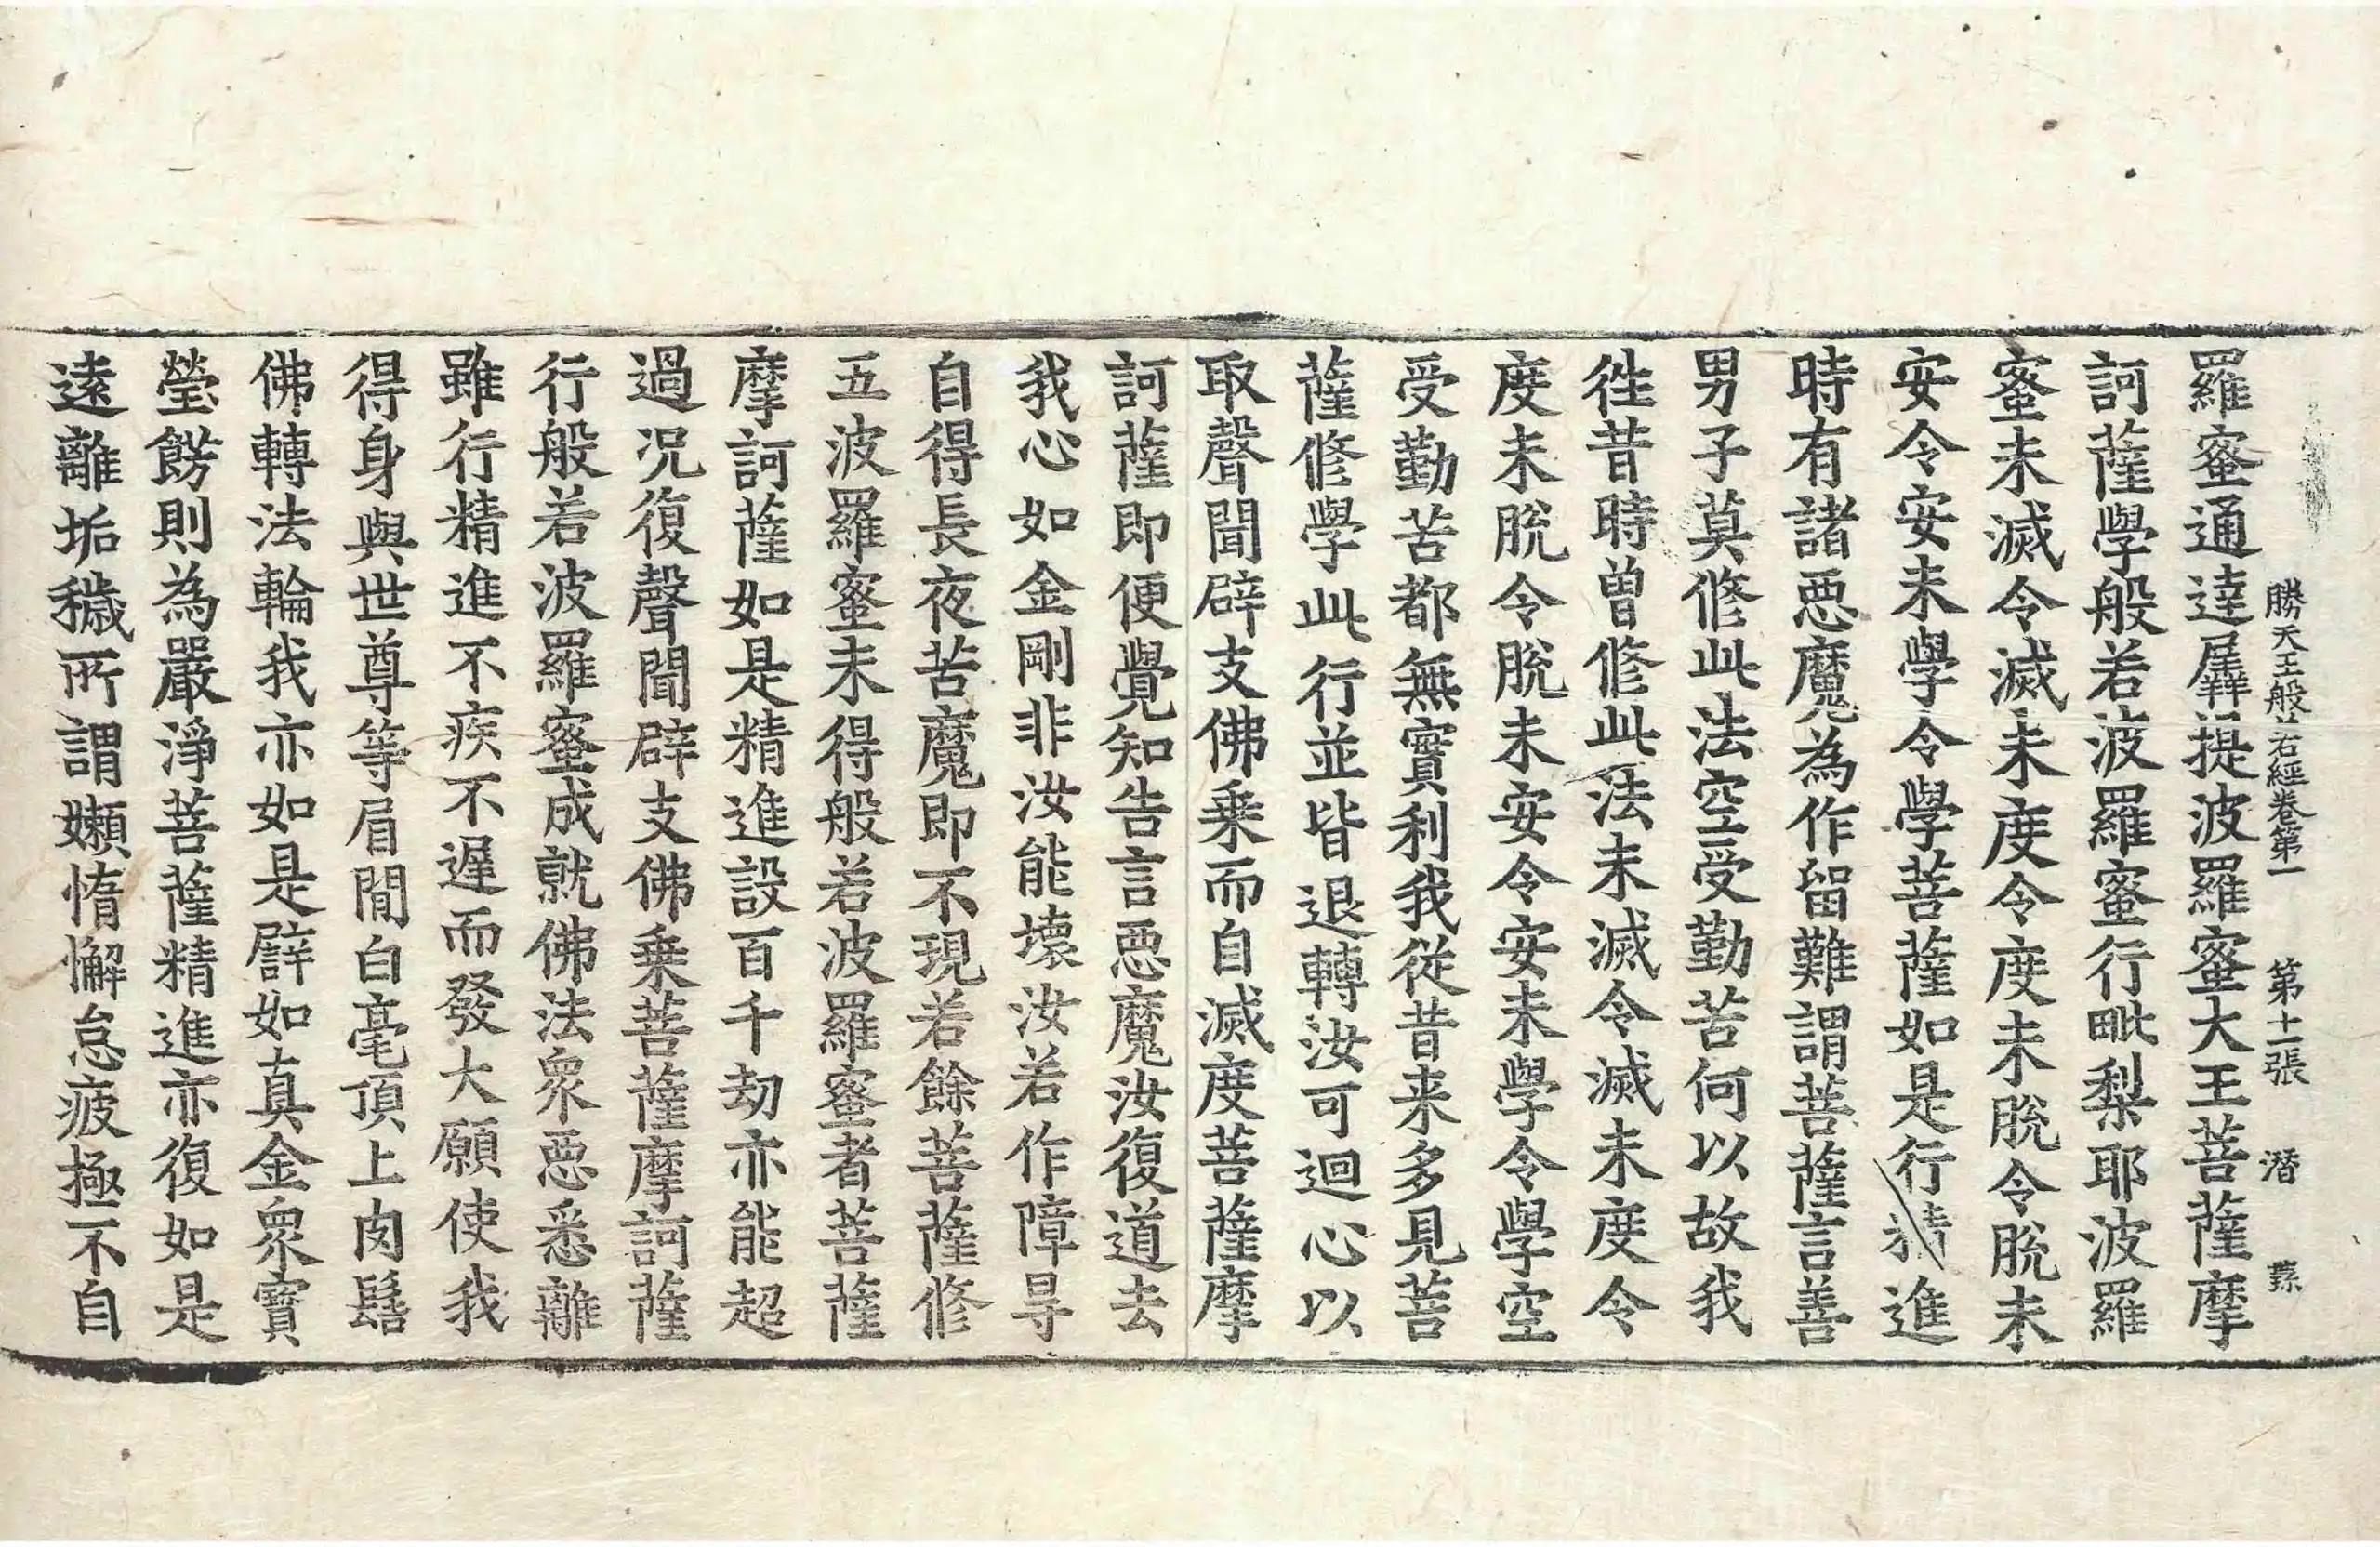 勝天王般若經卷第一 第十一張 潛
羅蜜通達羼提波羅蜜大王菩薩摩
訶薩學般若波羅蜜行毗梨耶波羅
蜜未滅令滅未度令度未脫令脫未
安令安未學令學菩薩如是行精進
時有諸惡魔為作留難謂菩薩言善
男子莫修此法空受勤苦何以故我
徃昔時曾修此法未滅令滅未度令
度未脫令脫未安令安未學令學空
受勤苦都無實利我從昔来多見菩
薩修學此行並皆退轉汝可迴心以
取聲聞辟支佛乗而自滅度菩薩摩
訶薩即便覺知告言惡魔汝復道去
我心如金剛非汝能壞汝若作障㝵
自得長夜苦魔即不現若餘菩薩修
五波羅蜜未得般若波羅蜜者菩薩
摩訶薩如是精進設百千劫亦能超
過况復聲聞辟支佛乗菩薩摩訶薩
行般若波羅蜜成就佛法衆惡悉離
雖行精進不疾不遲而發大願使我
得身與世尊等眉閒白毫頂上肉髻
佛轉法輪我亦如是譬如真金衆寶
瑩餝則為嚴淨菩薩精進亦復如是
遠離垢穢所謂嬾惰懈怠疲極不自